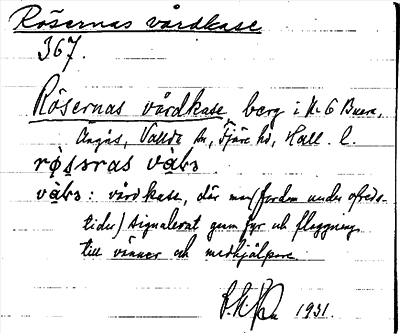 Rösernas vårdkase
367.
Rösernas vårdkase, berg i N. G Buera,
Ängås, Vallda sn, Fjäre hd, Hall. l.
røsṣras vàbs
vàbs : vårdkase, där man (fordom under ofreds-
tider) signalerat genom fyr och flaggning
till vänner och medhjälpare
1931.